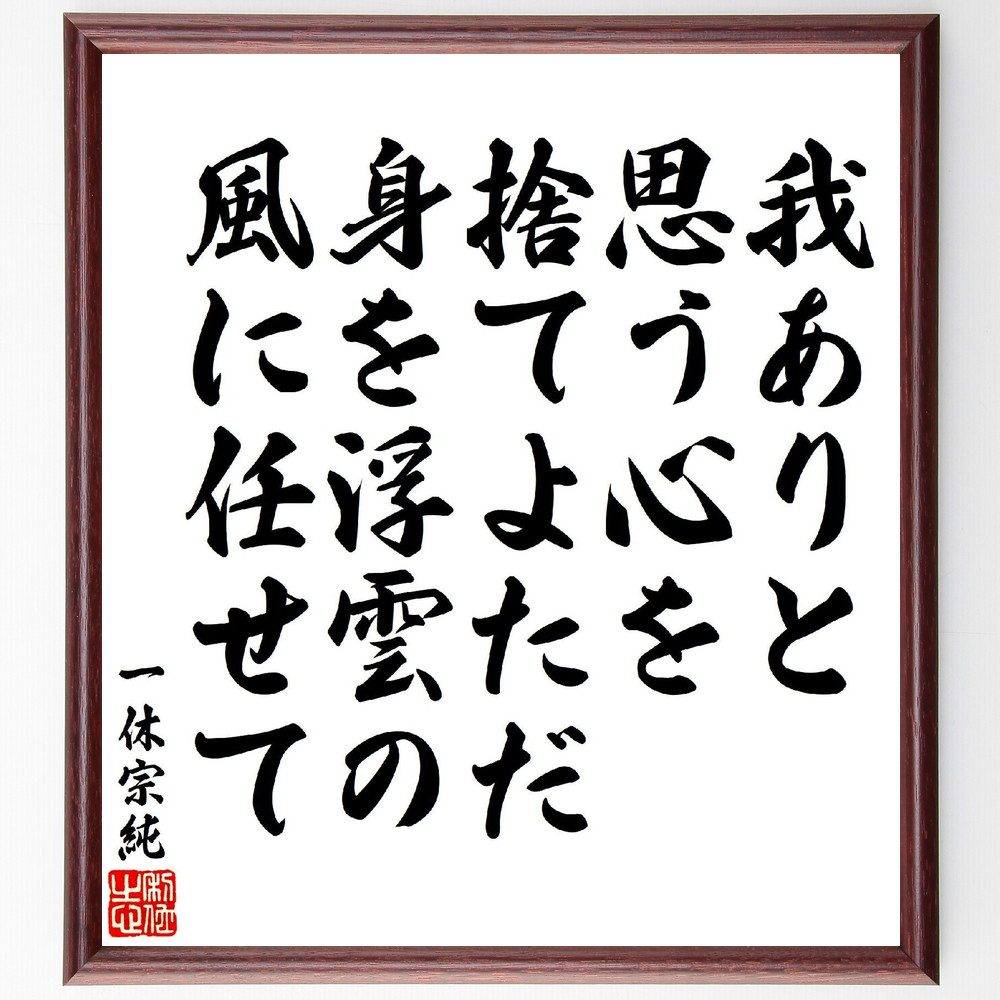 我ありと
思う心を
捨てよただ
身を浮雲の
風に任せて
一休宗純